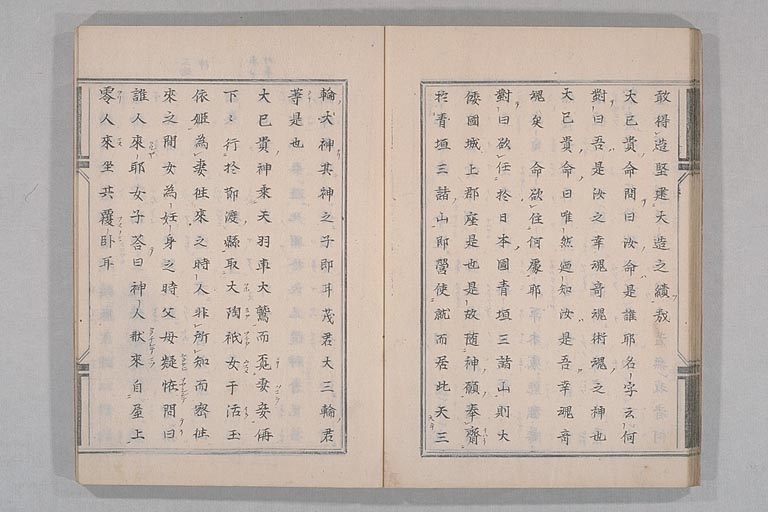 敢得造堅建大造之績哉
大已貴命問曰汝命是誰耶名字云何
對曰吾是汝之幸魂竒魂術魂之神也
大已貴命曰唯然廼知汝是吾幸魂竒
魂矣命欲住何處耶
對曰欲住於日本國青垣三諸山則大
倭國城上郡座是也是故随神願奉齋
於青垣三諸山即營使就而居此天三
輪大神其神之子即耳茂君大三輪君
等是也
大已貴神乘天羽車大鷲而覓妻妾俑
下〻行於節渡縣取大陶祇女子活玉
依姫為妻徃來之時人非所知而密徃
來之間女為妊身之時父母疑恠問曰
誰人來耶女子荅曰神人狀來自屋上
零人來坐共覆卧耳